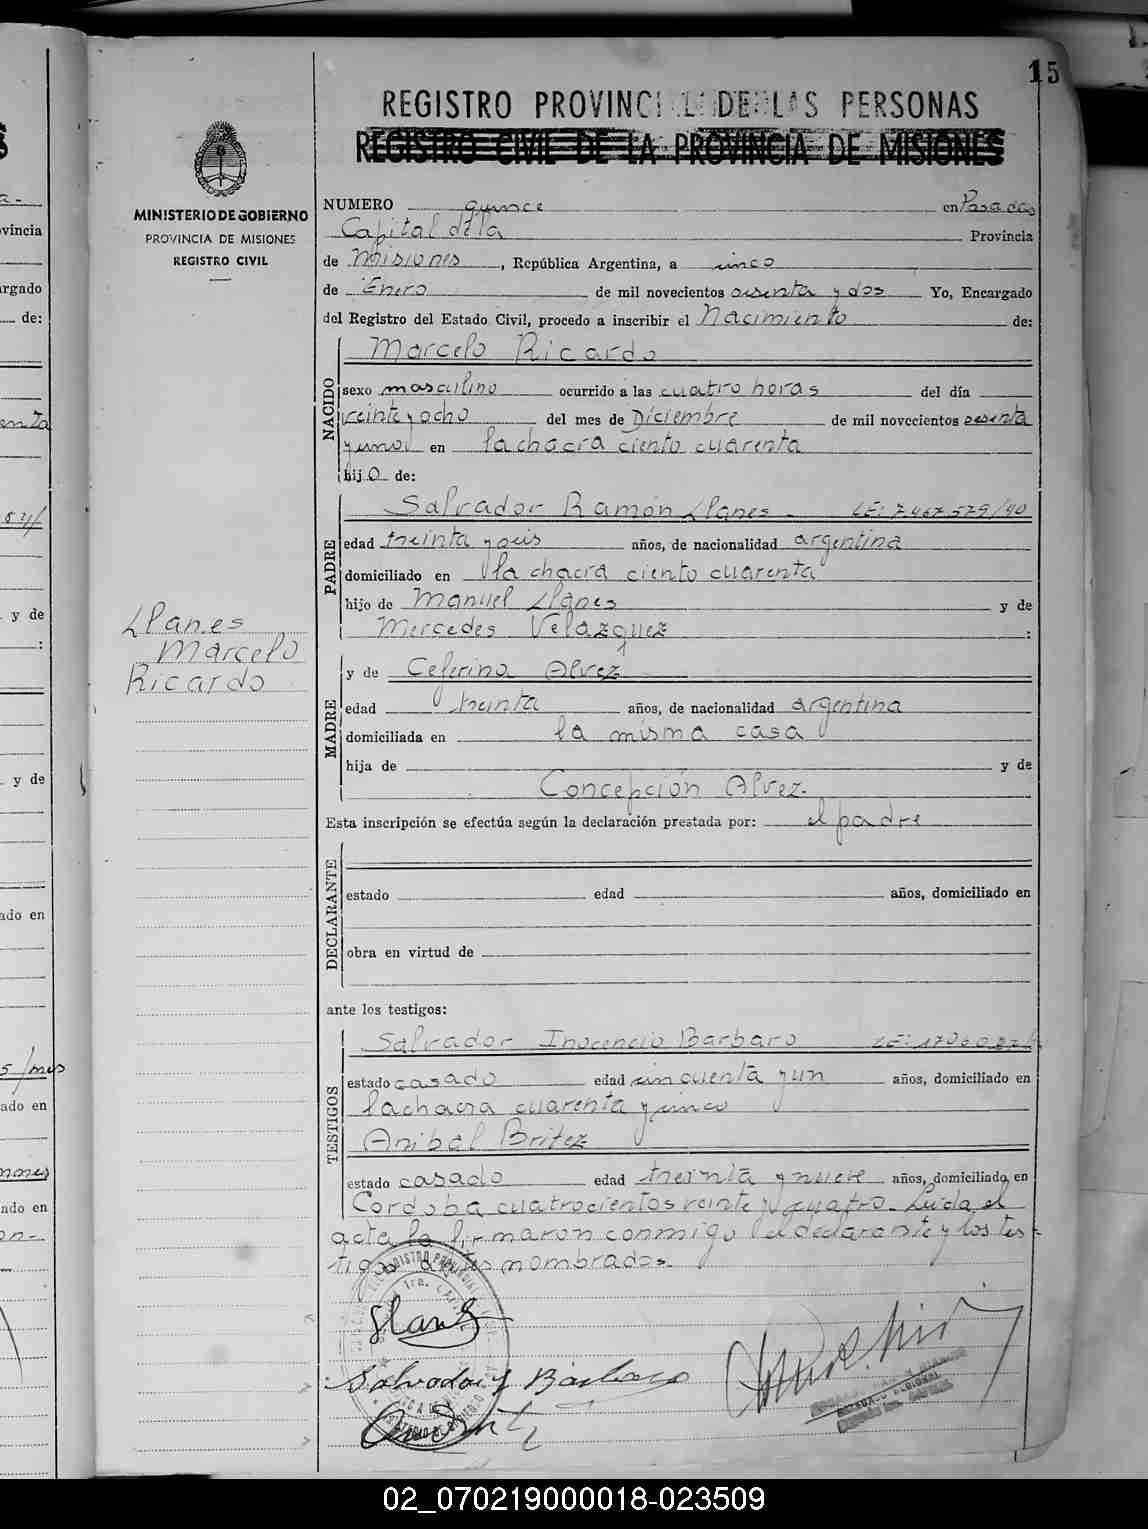 15
REGISTRO PROVINCIAL DE LAS PERSONAS
REGISTRO CIVIL DE LA PROVINCIA DE MISIONES
MINISTERIO DE GOBIERNO
PROVINCIA DE MISIONES
REGISTRO CIVIL
NUMERO quince en Posadas
Capital de la Provincia
de Misiones, República Argentina, a cinco
de Enero de mil novecientos sesenta y dos Yo, Encargado
del Registro del Estado Civil, procedo a inscribir el Nacimiento de:
NACIDO
Marcelo Ricardo
sexo masculino ocurrido a las cuatro horas del día
veinte y ocho del mes de Diciembre de mil novecientos sesenta
y uno en la chacra ciento cuarenta
hijo de:
PADRE
Salvador Ramón Llanes - LE: 7467579/40
edad treinta y seis años, de nacionalidad argentina
domiciliado en la chacra ciento cuarenta
hijo de Manuel Llanes y de
Mercedes Velazquez :
Llanes
Marcelo
Ricardo
MADRE
y de Ceferina Alvez
edad treinta años, de nacionalidad argentina
domiciliada en la misma casa
hija de y de
Concepción Alvez.
Esta inscripción se efectúa según la declaración prestada por: el padre
DECLARANTE
estado edad años, domiciliado en
obra en virtud de
ante los testigos:
TESTIGOS
Salvador Inocencio Barbaro LE:
estado casado edad cincuenta y un años, domiciliado en
la chacra cuarenta y cinco
Anibal Britez
estado casado edad treinta y nueve años, domiciliado en
Cordoba cuatrocientos veinte y cuatro. Leída el
acta la firmaron conmigo el declarante y los tes-
tigos nombrados.
Llanes
Salvador Y Barbaro
02_070219000018-023509